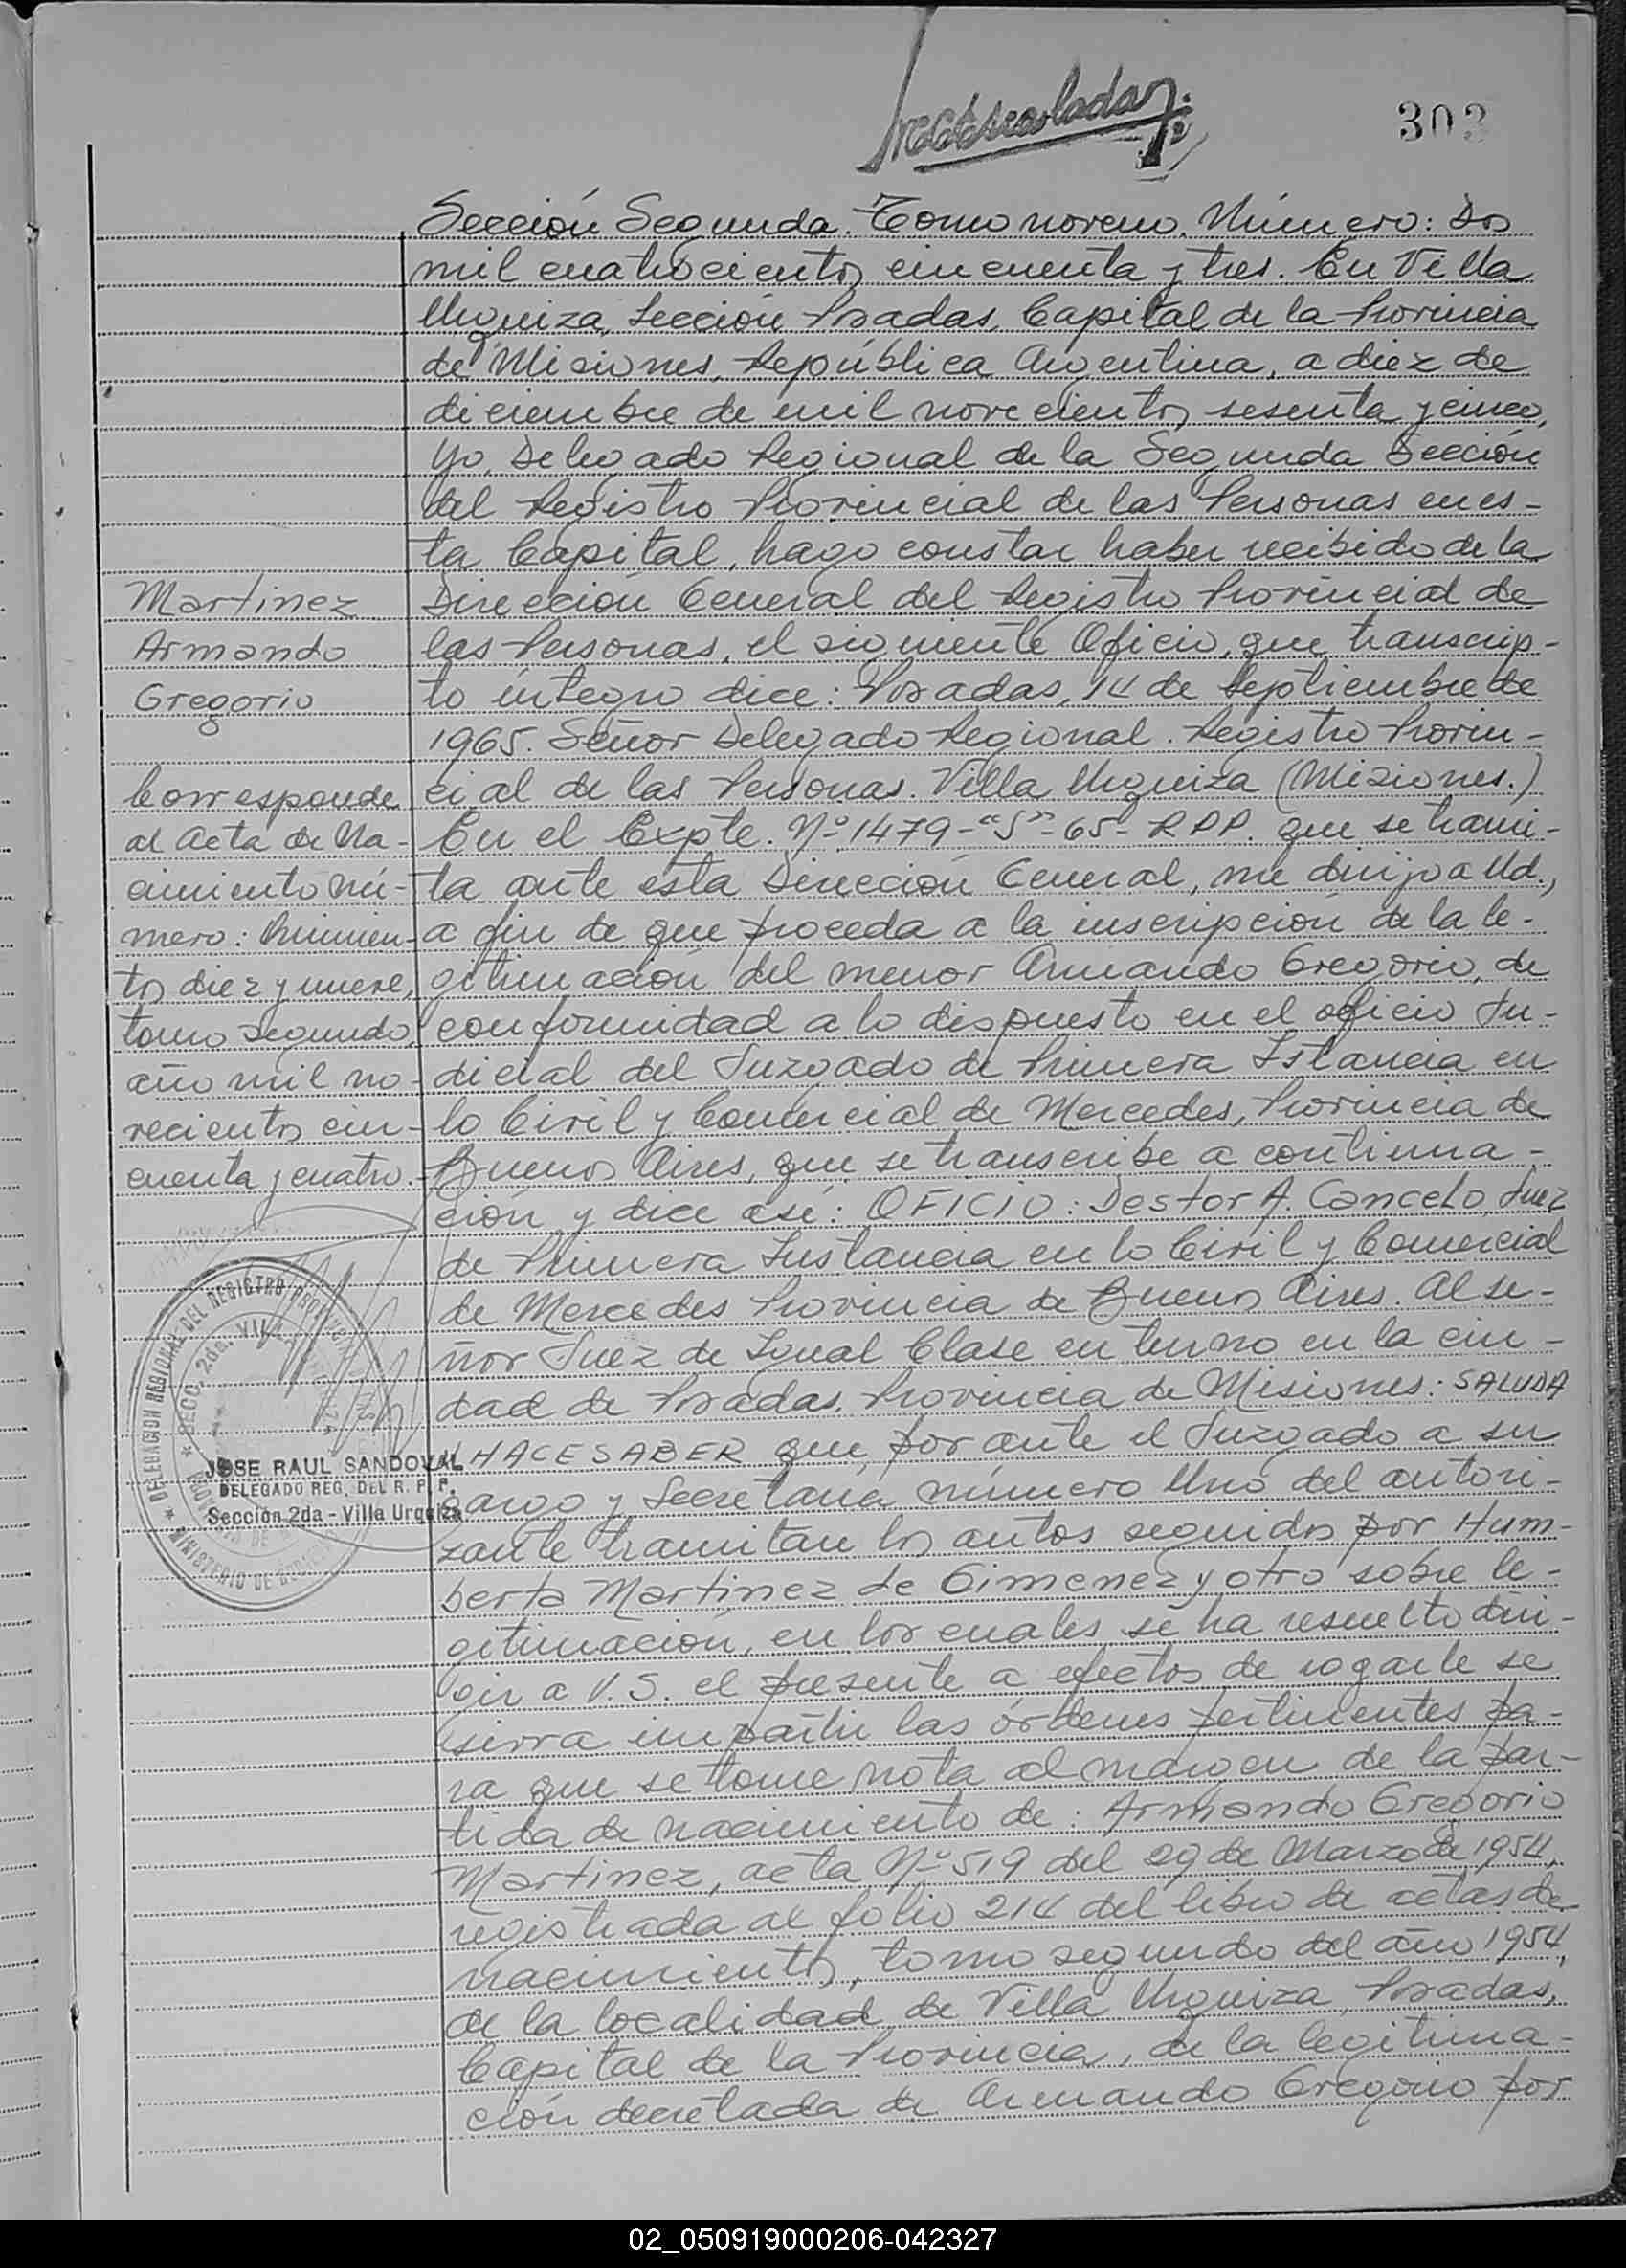 303
Sección Segunda. Tomo noveno. Número: Dos
mil cuatrocientos cincuenta y tres. En Villa
Urquiza, Sección Posadas, Capital de la Provincia
de Misiones, República Argentina, a diez de
diciembre de mil novecientos sesenta y cinco,
Yo, Delegado Regional de la Segunda Sección
del Registro Provincial de las Personas en es-
ta Capital, hago constar haber recibido de la
Dirección General del Registro Provincial de
las Personas, el siguiente Oficio, que transcrip-
to íntegro dice: Posadas, 14 de Septiembre de
1965. Señor Delegado Regional. Registro Provin-
cial de las Personas. Villa Urquiza (Misiones.)
En el Expte. Nº 1479-"S"-65- R.P.P. que se trami-
ta ante esta Dirección General, me dirijo a Ud.,
a fin de que proceda a la inscripción de la le-
gitimación del menor Armando Gregorio, de
conformidad a lo dispuesto en el oficio Ju-
dicial del Juzgado de Primera Istancia en
lo Civil y Comercial de Mercedes, Provincia de
Buenos Aires, que se transcribe a continua-
ción y dice así: OFICIO: Destor A. Cancelo, Juez
de Primera Instancia en lo Civil y Comercial
de Mercedes Provincia de Buenos Aires. Al se-
ñor Juez de Igual Clase en turno en la ciu-
dad de Posadas, Provincia de Misiones: SALUDA
Y HACE SABER que, por ante el Juzgado a su
cargo y Secretaría número Uno del autori-
zante tramitan los autos seguidos por Hum-
berta Martinez de Gimenez y otro sobre le-
gitimación, en los cuales se ha resuelto diri-
gir a V.S. el presente a efectos de rogarle se
sirva impartir las órdenes pertinentes pa-
ra que se tome nota al margen de la par-
tida de nacimiento de: Armando Gregorio
Martinez, acta Nº 519 del 29 de Marzo de 1954,
registrada al folio 214 del libro de actas de
nacimientos, tomo segundo del año 1954,
de la localidad de Villa Urquiza, Posadas,
Capital de la Provincia, de la legitima-
ción decretada de Armando Gregorio por
Martinez
Armando
Gregorio
Corresponde
al Acta de Na-
cimiento nú-
mero: Quinien-
tos diez y nueve,
tomo segundo,
año mil no-
vecientos cin-
cuenta y cuatro.
DELEGACION REGIONAL DEL REGISTRO
SECC. 2da. VILLA
MINISTERIO DE GOBIERNO
JOSE RAUL SANDOVAL
DELEGADO REG. DEL R. P. P.
Sección 2da - Villa Urquiza
02_050919000206-042327